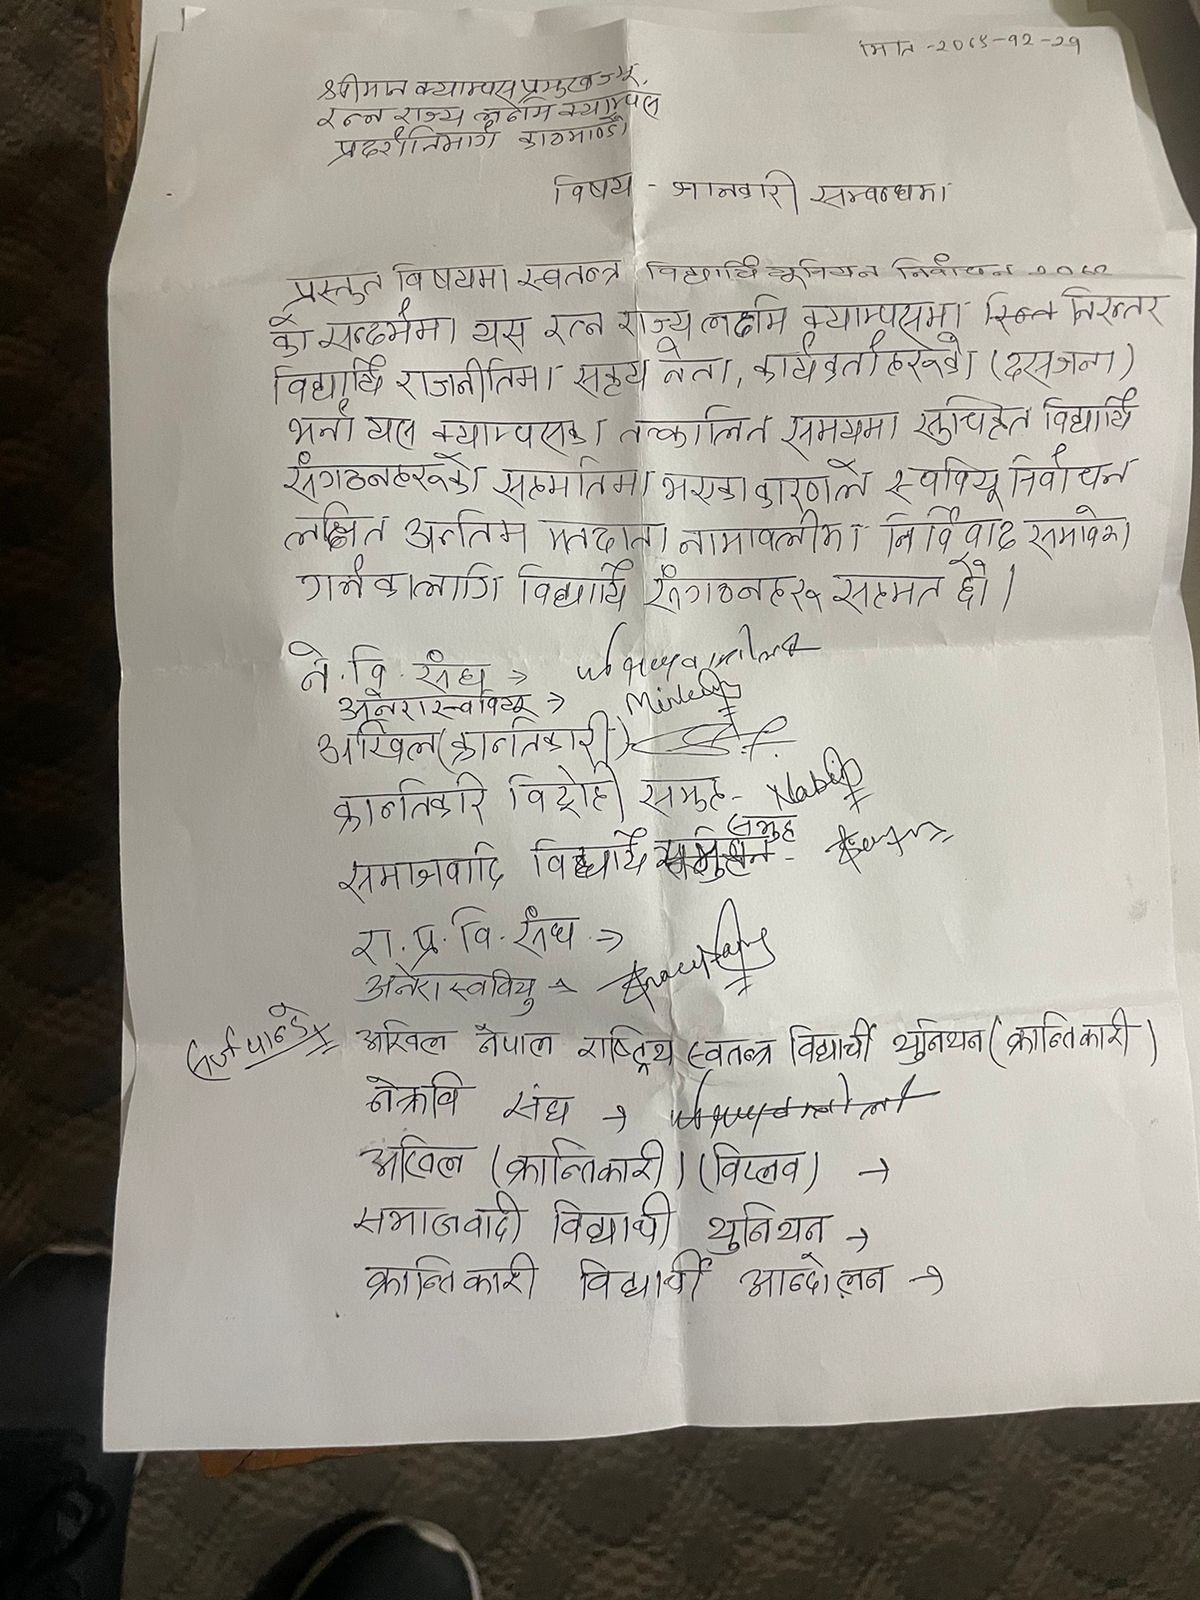 मिति -२०७९-१२-२१
श्रीमान क्याम्पस प्रमुखज्यू,
रत्न राज्य लक्ष्मि क्याम्पस
प्रदर्शनिमार्ग काठमाण्डौ
विषय - जानकारी सम्बन्धमा
प्रस्तुत विषयमा स्वतन्त्र विद्यार्थि यूनियन निर्वाचन २०७९
को सन्दर्भमा यस रत्न राज्य लक्ष्मि क्याम्पसमा निरन्तर
विद्यार्थि राजनीतिमा सक्रय नेता, कार्यकर्ताहरूको (दसजना)
भर्ना यस क्याम्पसका तत्कालित समयमा विद्यार्थि
संगठनहरूको सहमतिमा भएका कारणले स्ववियू निर्वाचन
लक्षित अन्तिम मतदाता नामावलीमा निर्विवाद समावेश
गर्नकालागि विद्यार्थि संगठनहरू सहमत छौ ।
ने. वि. संघ →
अनेरास्ववियू → 
अखिल (क्रान्तिकारी)
क्रान्तिकारि विद्रोही समुह - Nabin
समाजवादि विद्यार्थि समुह -
रा. प्र. वि. संघ →
अनेरास्ववियु →
अखिल नेपाल राष्ट्रिय स्वतन्त्र विद्यार्थी युनियन (क्रान्तिकारी)
नेक्रवि संघ →
अखिल (क्रान्तिकारी) (विप्लव) →
समाजवादी विद्यार्थी युनियन →
क्रान्तिकारी विद्यार्थी आन्दोलन →